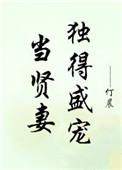 当贤妻
独得盛宠
——仃晨